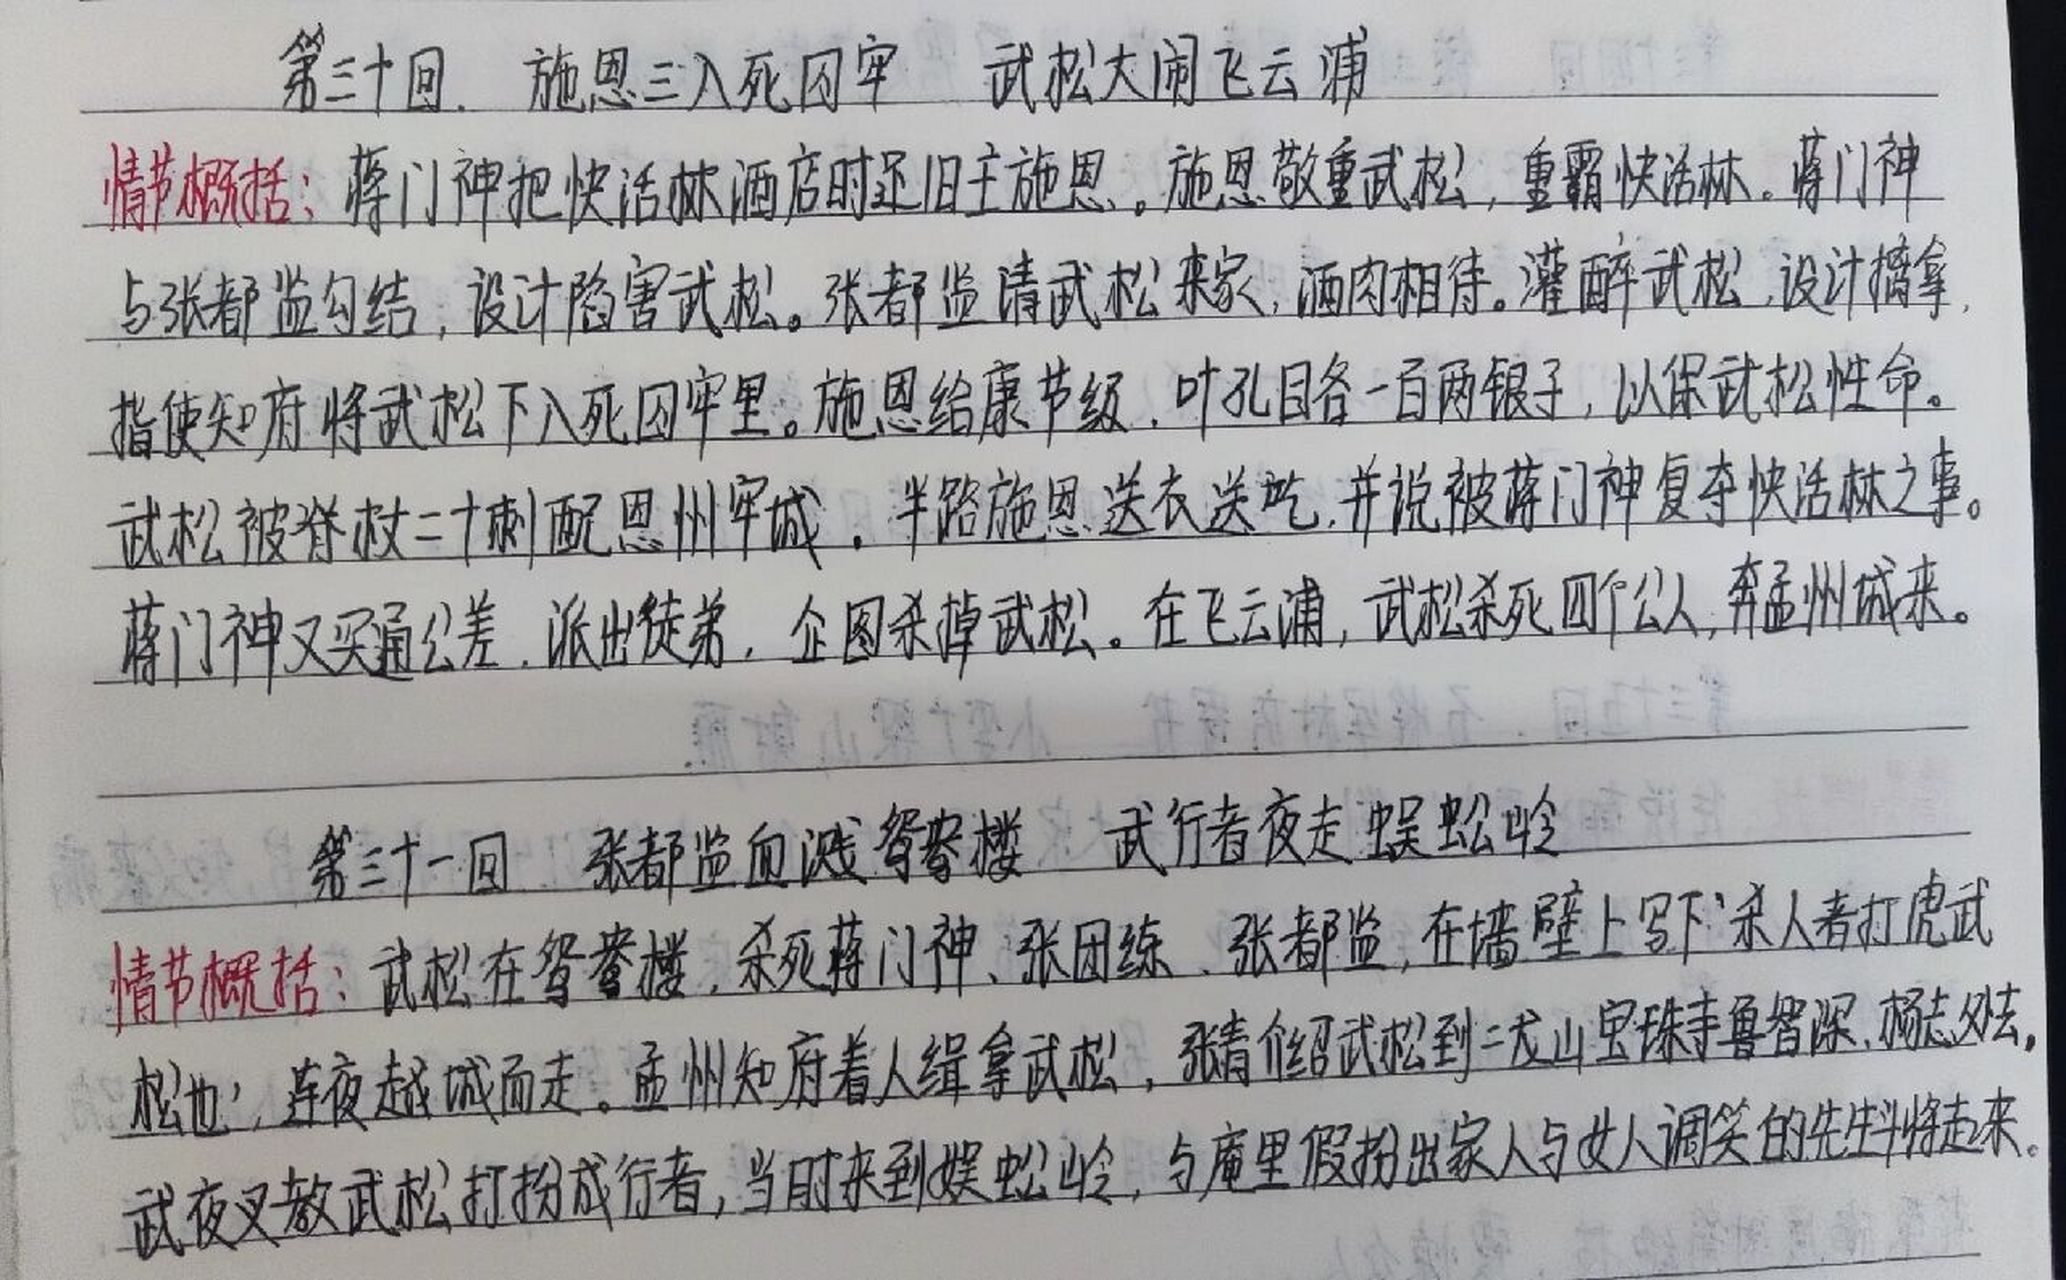 第三十回. 施恩三入死囚牢 武松大闹飞云浦
情节概括：蒋门神把快活林酒店时还旧主施恩。施恩敬重武松，重霸快活林。蒋门神
与张都监勾结，设计陷害武松。张都监请武松来家，酒肉相待。灌醉武松，设计擒拿，
指使知府将武松下入死囚牢里。施恩给康节级、叶孔目各一百两银子，以保武松性命。
武松被脊杖二十刺配恩州牢城。半路施恩送衣送吃，并说被蒋门神复夺快活林之事。
蒋门神又买通公差，派出徒弟，企图杀掉武松。在飞云浦，武松杀死四个公人，奔孟州城来。
第三十一回 张都监血溅鸳鸯楼 武行者夜走蜈蚣岭
情节概括：武松在鸳鸯楼，杀死蒋门神、张团练、张都监，在墙壁上写下‘杀人者打虎武
松也’，连夜越城而走。孟州知府着人缉拿武松，张青介绍武松到二龙山宝珠寺鲁智深、杨志处去，
武夜叉教武松打扮成行者，当时来到蜈蚣岭，与庵里假扮出家人与女人调笑的先生斗将起来。